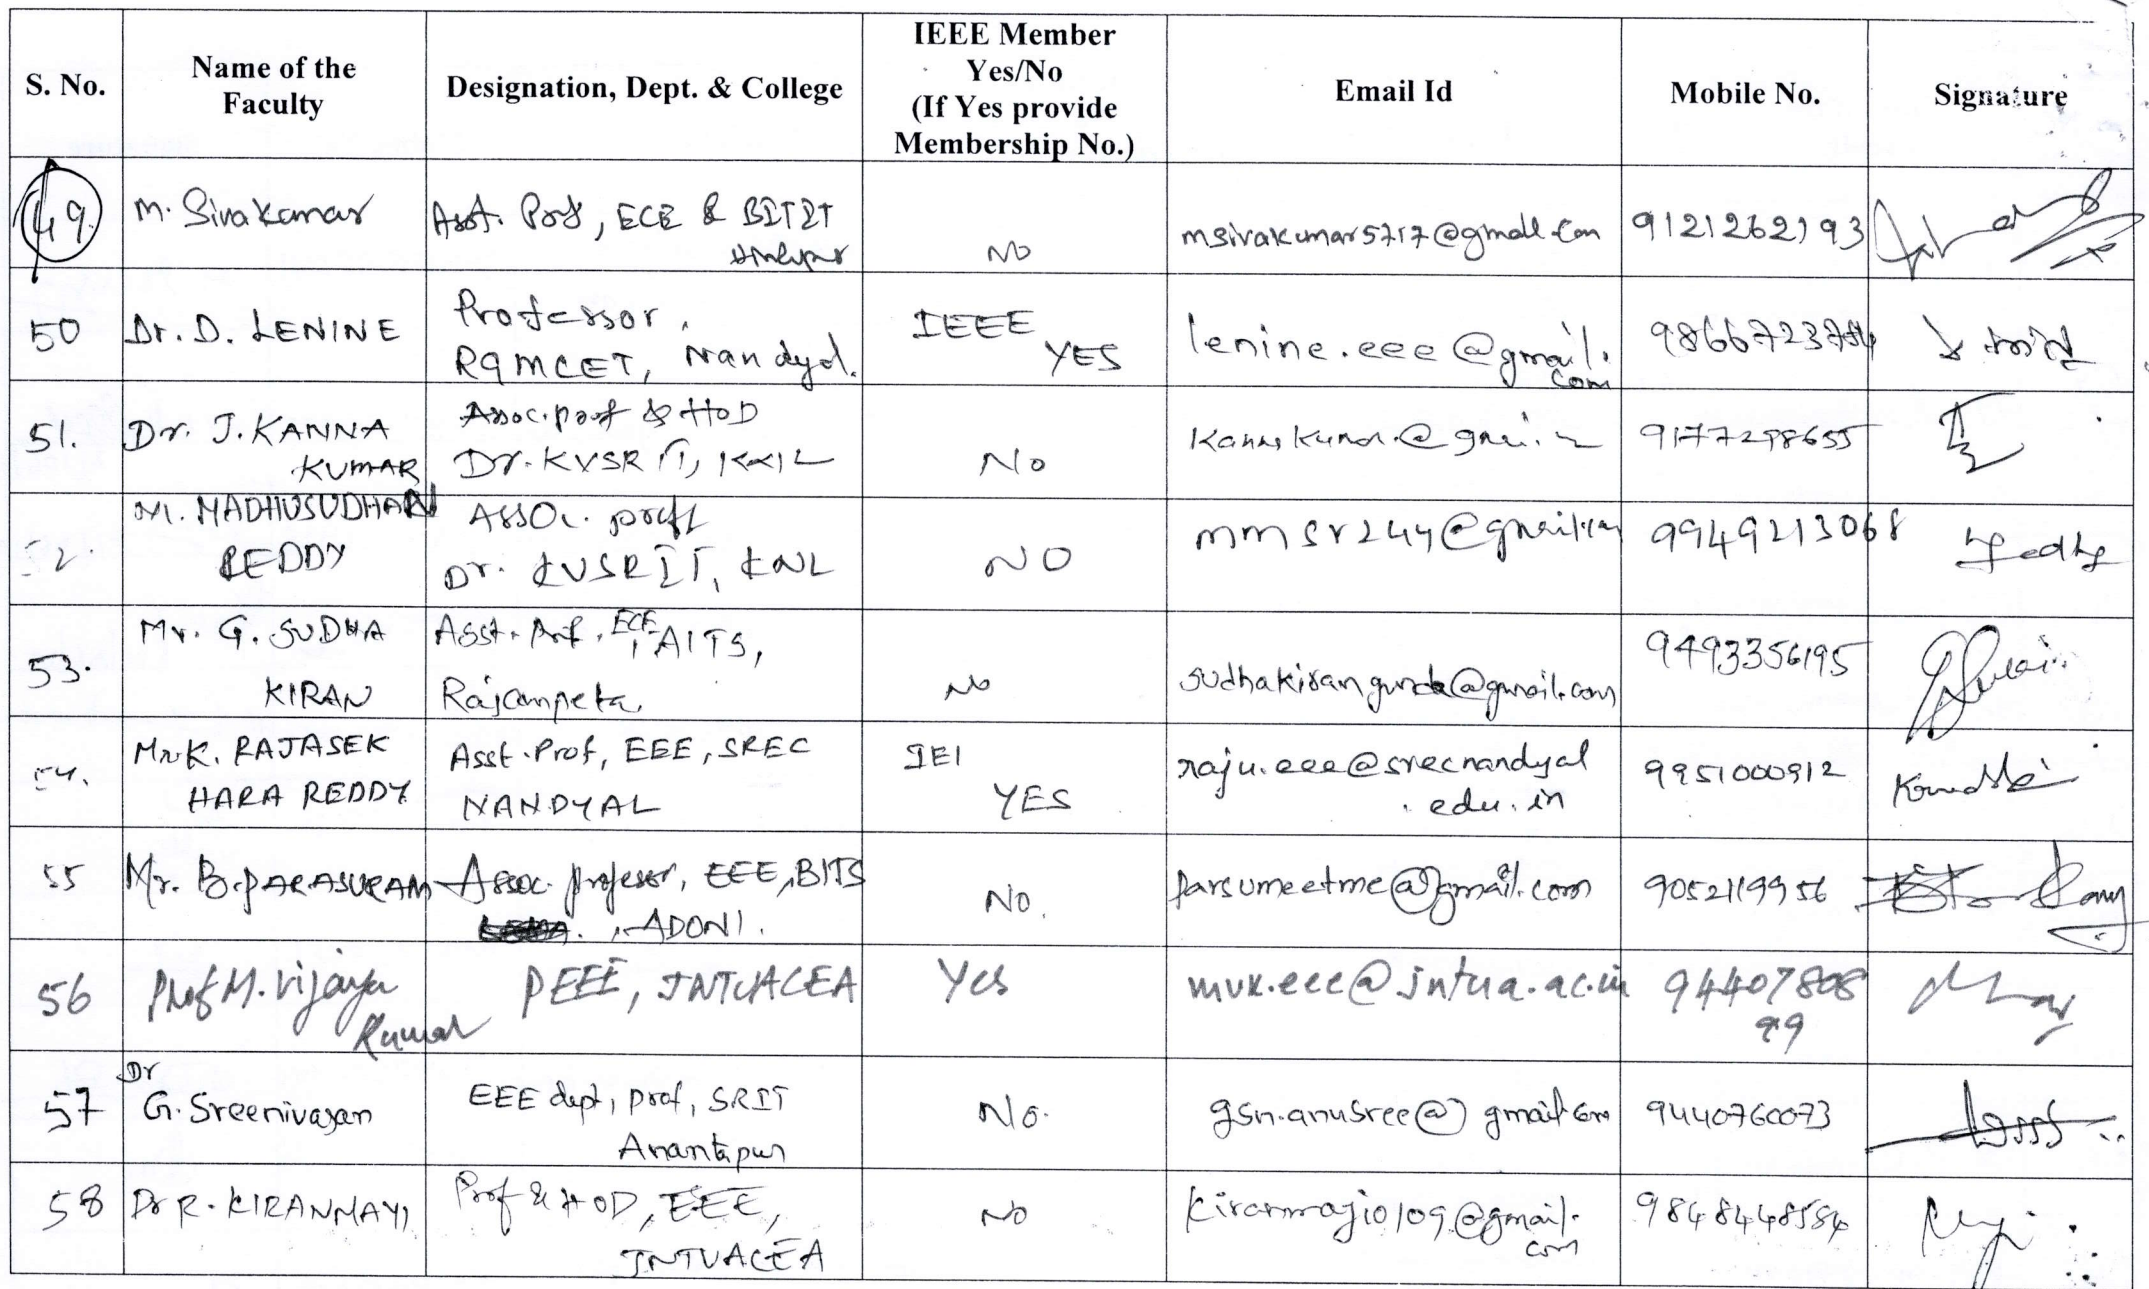 S. No.
Name of the
Faculty
Designation, Dept. & College
IEEE Member
Yes/No
(If Yes provide
Membership No.)
Email Id
Mobile No.
Signature
49.
M. Sivakumar
Asst. Prof, ECE & BIT IT
Hindupur
NO
msivakumar5717@gmail.com
9121262193
50
Dr. D. LENINE
Professor,
RGMCET, Nandyal.
IEEE
YES
lenine.eee@gmail.
com
51.
Dr. J. KANNA
KUMAR
Assoc. prof & HOD
Dr. KVSRIT,
No
9177298655
M. MADHUSUDHAN
REDDY
Assoc. proff
Dr. KVSRIT, KNL
NO
mmsr244@gmail.com
9949213068
53.
Mr. G. SUDHA
KIRAN
Asst. Prof, ECE, AITS,
Rajampeta.
No
sudhakirangunda@gmail.com
9493356195
54.
Mr. K. RAJASEK
HARA REDDY
Asst. Prof, EEE, SREC
NANDYAL
IEI
YES
raju.eee@srecnandyal
.edu.in
9951000912
55
Mr. B. PARASURAM
Assoc. professor, EEE, BITS
, ADONI.
No.
parsumeetme@gmail.com
9052119956
56
Prof M. Vijaya
Kumar
PEEE, JNTUACEA
Yes
mvk.eee@jntua.ac.in
94407808
99
57
Dr
G. Sreenivasan
EEE dept, prof, SRIT
Anantapur
No.
gsn.anusree@gmail.com
9440760073
58
Dr R. KIRANMAYI
Prof & HOD, EEE,
JNTUACEA
No
kiranmayi0109@gmail.
com
9848448584